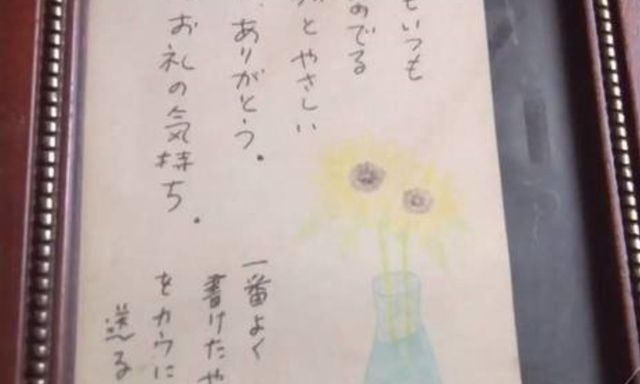 もいつも
でる
とやさしい
ありがとう。
お礼の気持ち。
一番よく
書けたや
をカウに
送る